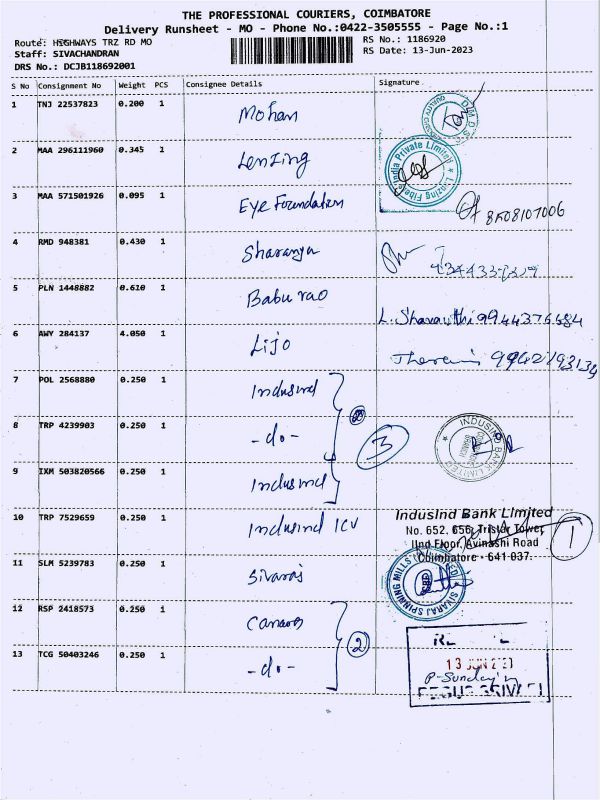 THE PROFESSIONAL COURIERS, COIMBATORE
Delivery Runsheet - MO - Phone No.:0422-3505555 - Page No.:1
Route: HIGHWAYS TRZ RD MO
RS No.: 1186920
Staff: SIVACHANDRAN
RS Date: 13-Jun-2023
DRS No.: DCJB118692001
S No Consignment No Weight PCS Consignee Details Signature
1 TNJ 22537823 0.200 1 Mohan
2 MAA 296111960 0.345 1 Lenzing
Lenzing Fibers India Private Limited
3 MAA 571501926 0.095 1 Eye Foundation
4 RMD 948381 0.430 1 Sharanya
5 PLN 1448882 0.610 1 Babu rao
L. Shavanthi 9944376684
6 AWY 284137 4.050 1 Lijo
7 POL 2568880 0.250 1 Indusind
8 TRP 4239903 0.250 1 -do- 3
INDUSIND BANK LIMITED
9 IXM 503820566 0.250 1 Indusind
10 TRP 7529659 0.250 1 Indusind ICV
IndusInd Bank Limited
No. 652, 656, Tristar Tower,
IInd Floor, Avinashi Road
Coimbatore - 641 037.
1
11 SLM 5239783 0.250 1 Sivaraj
SIVARAJ SPINNING MILLS
12 RSP 2418573 0.250 1 Canara
2
13 TCG 50403246 0.250 1 -do-
13 JUN